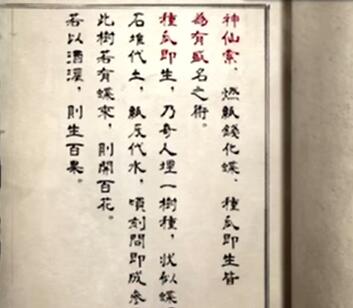 神仙索、燃紙錢化蝶、種瓜即生皆
為有盛名之術。
種瓜即生，乃奇人埋一樹種，狀似蝶
石堆代土，紙灰代水，頃刻間即成參
此樹若有蝶來，則開百花。
若以酒澆，則生百果。